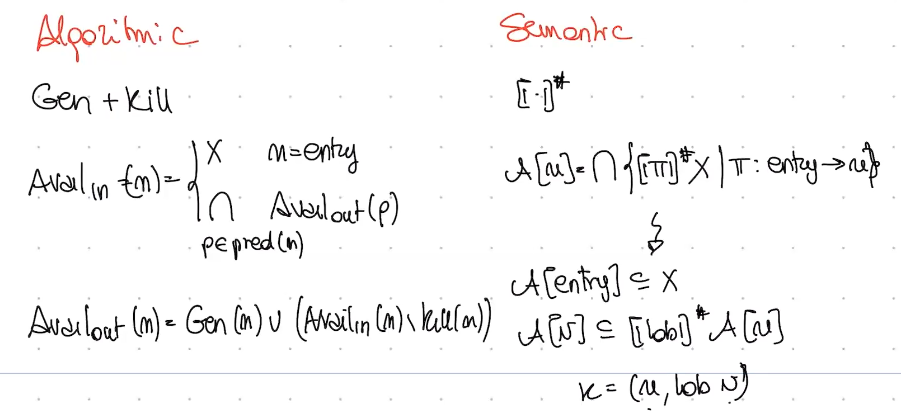 Algoritmic
Gen + Kill
Avail_in (n) = { X n = entry
∩ Availout(p)
p∈pred(n)
Availout (n) = Gen(n) ∪ (Availin(n) \ kill(n))
Semantic
[[·]]#
A[u] = ∩ {[[π]]# X | π : entry → u}
A[entry] ⊆ X
A[v] ⊆ [[lab]]# A[u]
k = (u, lab v)